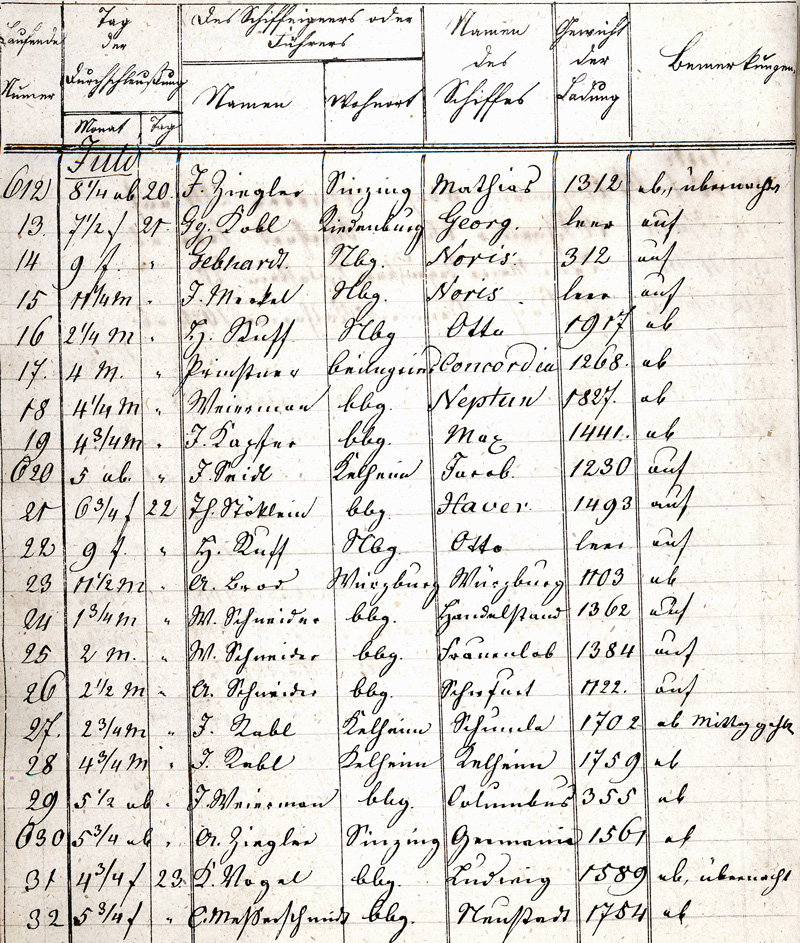 Laufende Numer | Tag der Durchschleußung | Des Schiffeigners oder Führers | Namen des Schiffes | Gewicht der Ladung | Bemerkungen
Monat | Tag | Namen | Wohnort
Juli
612 8 1/4 ab 20. J. Ziegler Sinzing Mathias 1312 ab, übernacht
13. 7 1/2 f 21. Gg. Kobl Riedenburg Georg. leer auf
14 9 f. " Gebhardt Nbg. Noris. 312 auf
15 11 1/4 M " J. Merkel Nbg. Noris. leer auf
16 2 1/4 M " H. Ruff Nbg Otto 1917 ab
17. 4 M. " Beilngries Concordia 1268. ab
18 4 1/4 M " Weierman bbg. Neptun 1827. ab
19 4 3/4 M " J. Kapfer bbg. Max 1441. ab
620 5 ab. " J. Seidl Kelheim Jacob 1230 auf
21 6 3/4 f 22 Th. Stöklein bbg. Xaver 1493 auf
22 9 f. " H. Ruff Nbg. Otto leer auf
23 11 1/2 M " A. Brod Würzburg Würzburg 1103 ab
24 1 3/4 M " W. Schneider bbg. Handelstand 1362 auf
25 2 M. " W. Schneider bbg. Frauenlob 1384 auf
26 2 1/2 M " A. Schneider bbg. 1122. auf
27. 2 3/4 M " J. Rabl Kelheim 1702 ab Mittag
28 4 3/4 M " J. Rabl Kelheim Kelheim 1759 ab
29 5 1/2 ab " J. Weierman bbg. Columbus 355 ab
630 5 3/4 ab " A. Ziegler Sinzing Germania 1561 ab
31 4 3/4 f 23. K. Vogel bbg. Ludwig 1589 ab, übernacht
32 5 3/4 f " C. Messerschmidt bbg. Neustadt 1754 ab